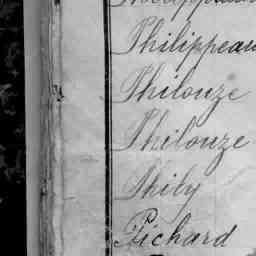 Philippeau
Philouze
Philouze
Phily
Pichard